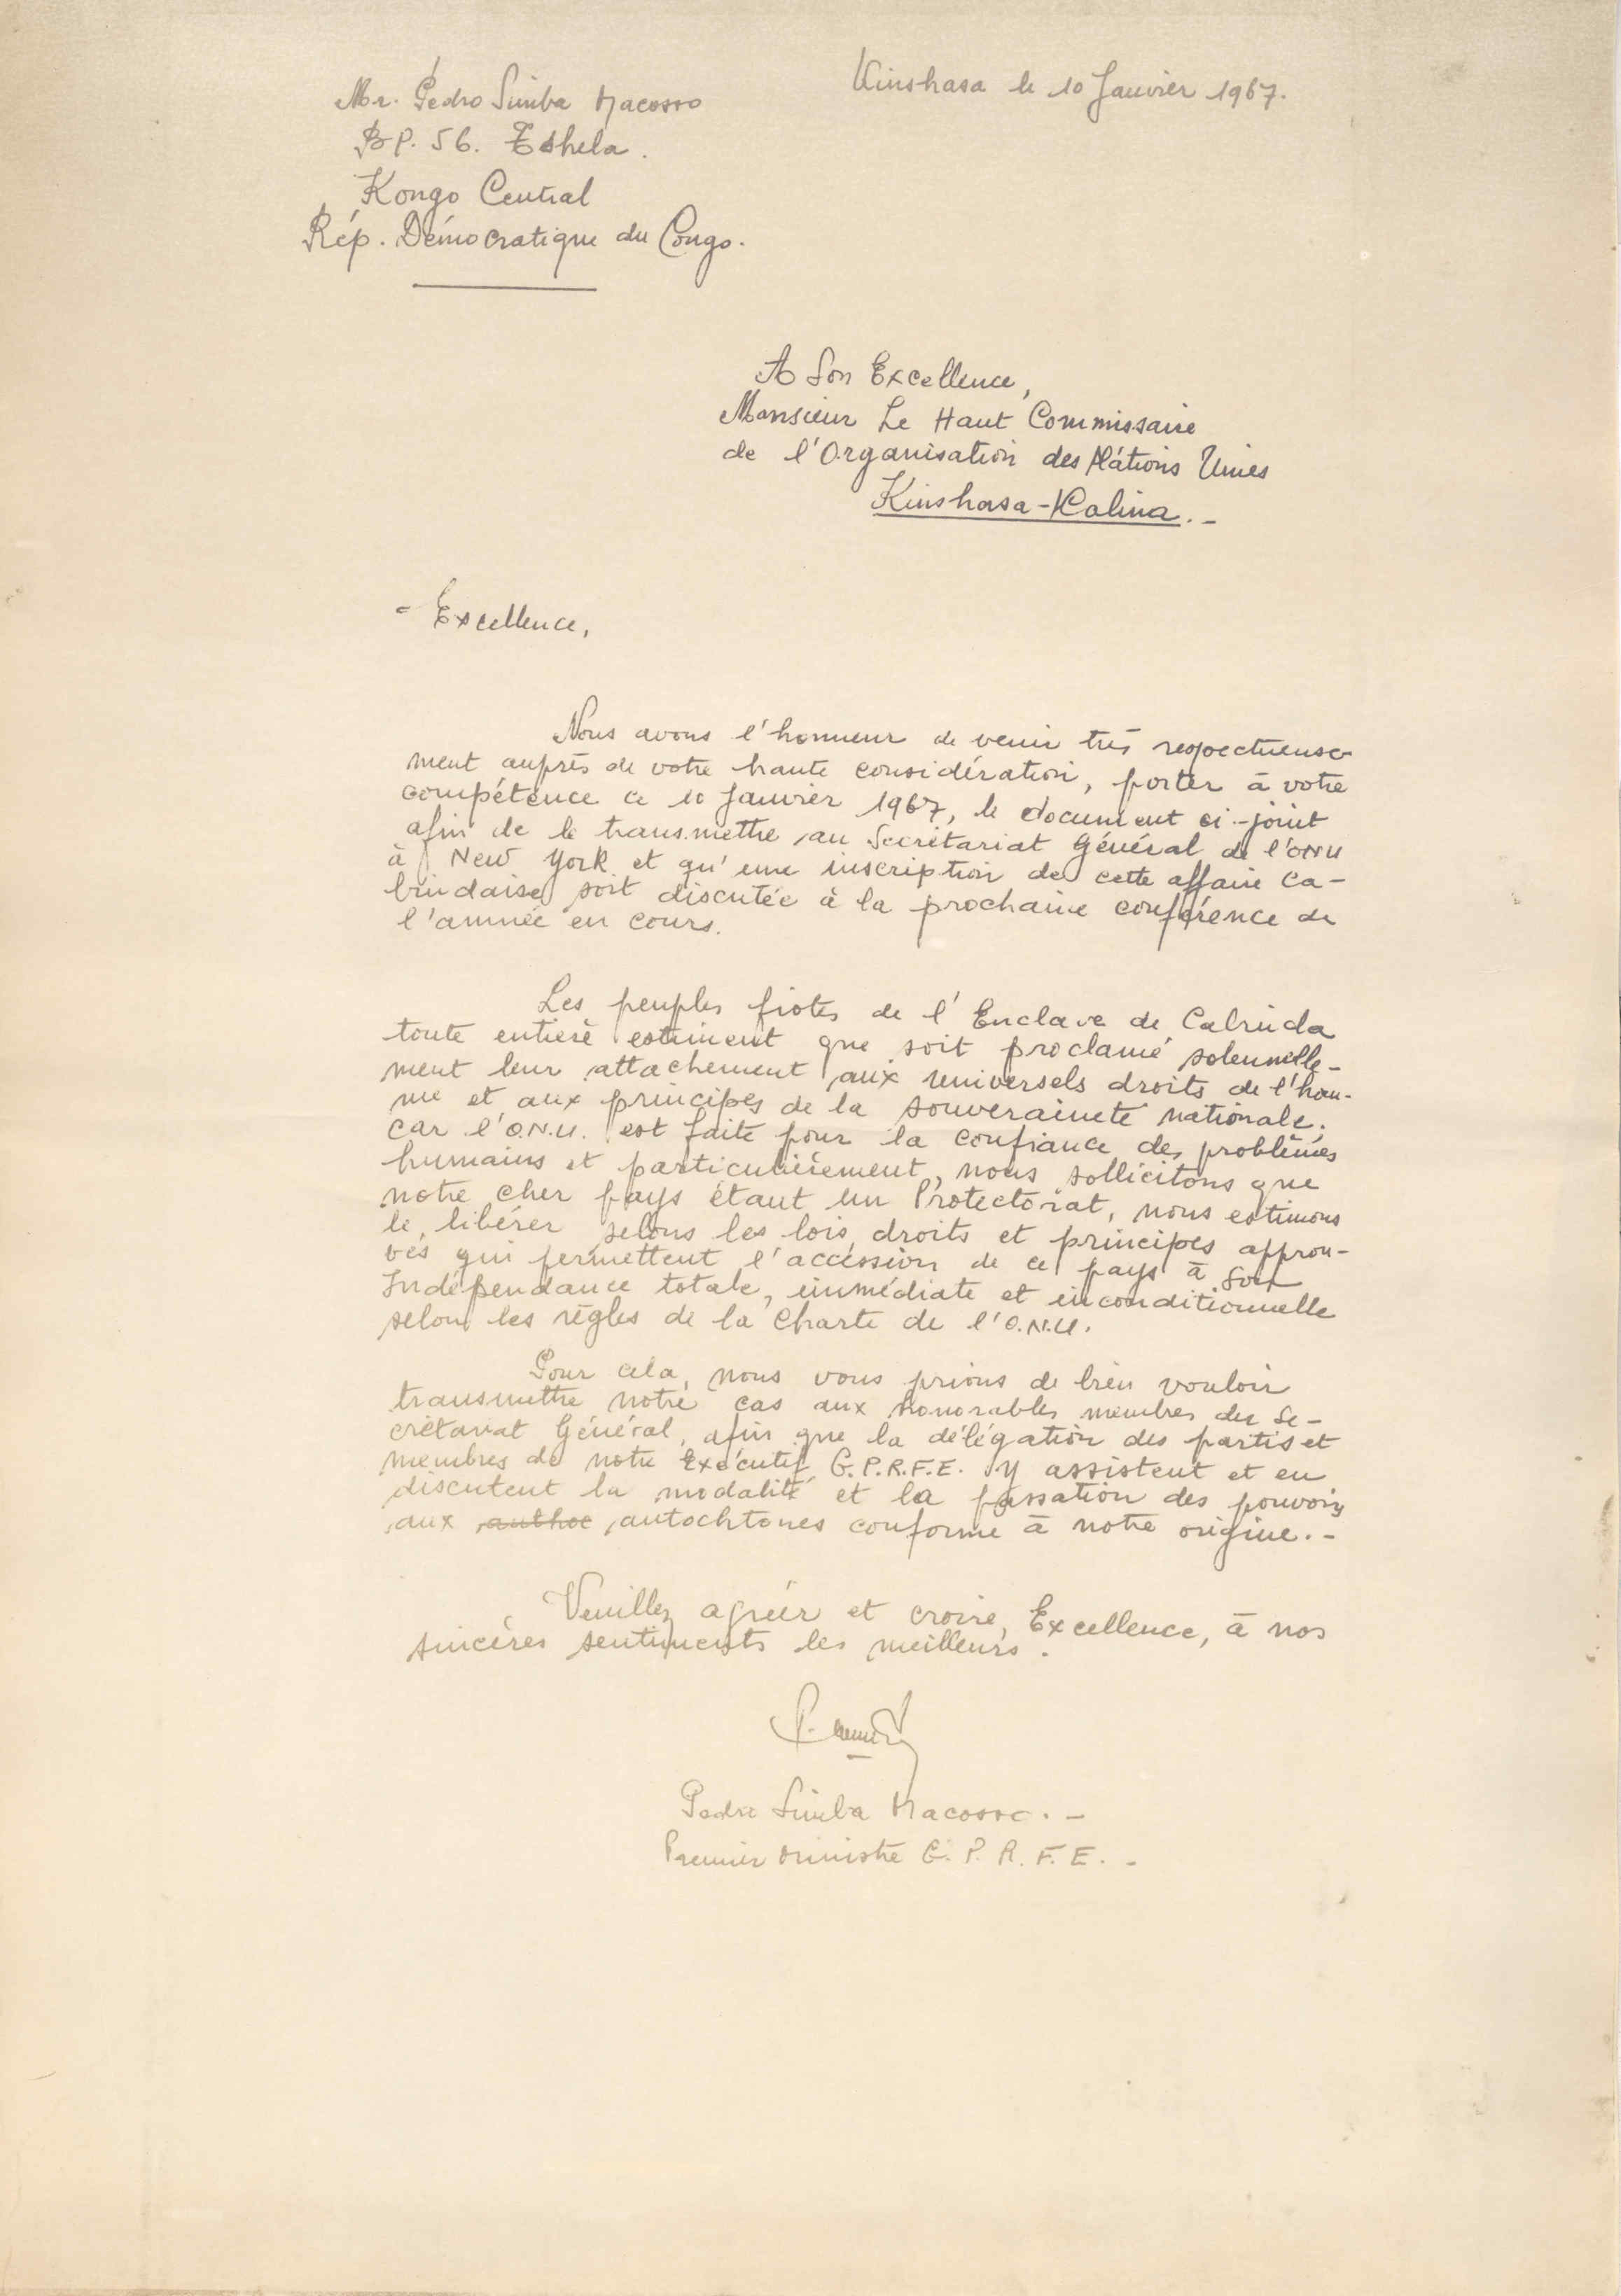 Kinshasa le 10 Janvier 1967.
Mr. Pedro Simba Macosso
B.P. 56. Tshela.
Kongo Central
Rép. Démocratique du Congo.
A Son Excellence,
Monsieur Le Haut Commissaire
de l'Organisation des Nations Unies
Kinshasa-Kalina.-
- Excellence,
Nous avons l'honneur de venir très respectueuse-
ment auprès de votre haute considération, porter à votre
compétence ce 10 Janvier 1967, le document ci-joint
afin de le transmettre au Secrétariat Général de l'ONU
à New York et qu'une inscription de cette affaire ca-
bindaise soit discutée à la prochaine conférence de
l'année en cours.
Les peuples fiotes de l'Enclave de Cabinda
toute entière estiment que soit proclamé solennelle-
ment leur attachement aux universels droits de l'hom-
me et aux principes de la souveraineté nationale.
Car l'O.N.U. est faite pour la confiance des problèmes
humains et particulièrement, nous sollicitons que
notre cher pays étant un Protectorat, nous estimons
le libérer selons les lois, droits et principes approu-
vés qui permettent l'accession de ce pays à son
Indépendance totale, immédiate et inconditionnelle
selon les règles de la Charte de l'O.N.U.
Pour cela, nous vous prions de bien vouloir
transmettre notre cas aux honorables membres du Se-
crétariat Général, afin que la délégation des partis et
membres de notre Exécutif G.P.R.F.E. y assistent et en
discutent la modalité et la passation des pouvoirs
aux autochtones conforme à notre origine.-
Veuillez agréer et croire, Excellence, à nos
sincères sentiments les meilleurs.
Pedro Simba Macosso.-
Premier Ministre G.P.R.F.E.-